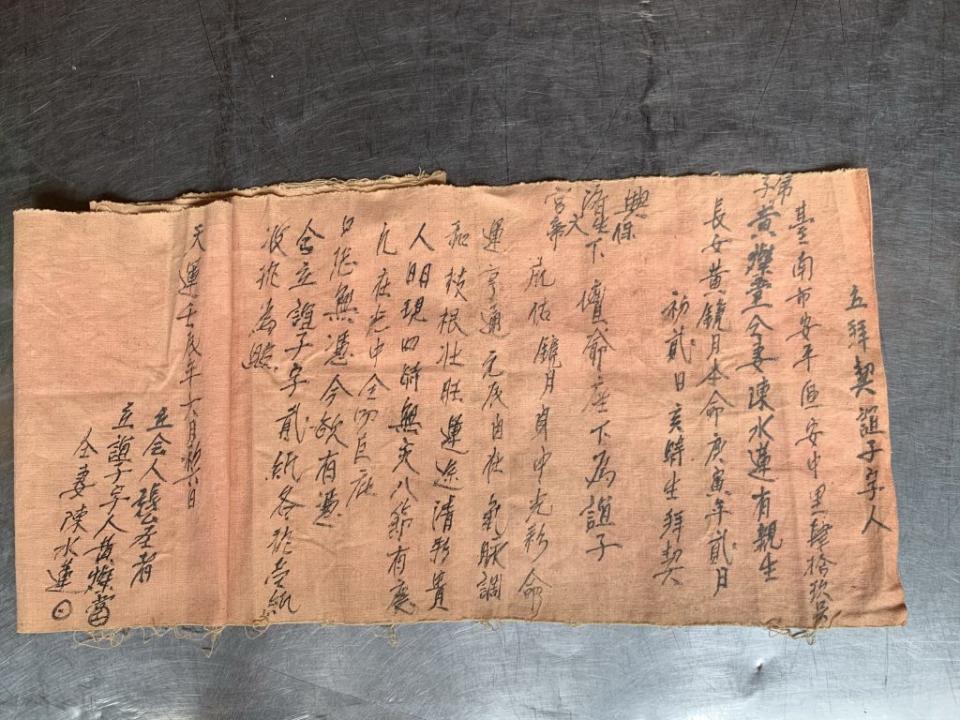 立拜契誼子字人
臺南市安平區安中里肆拾玖號
弟子黃燦當仝妻陳水蓮有親生
長女黃鏡月本命庚寅年貳月
初貳日亥時生拜契
興保
宮大帝
下壇爺座下為誼子
庇佑鏡月身中光彩命
運亨通元辰自在氣脈調
和枝根壯旺運途清彩貴
人明現四時無災八節有慶
凡在光中全叨巨庇
口恐無憑今欲有憑
合立誼子字貳紙各執壹紙
收執為照
天運壬辰年六月初六日
立会人張
立誼子字人黃燦當
仝妻陳水蓮